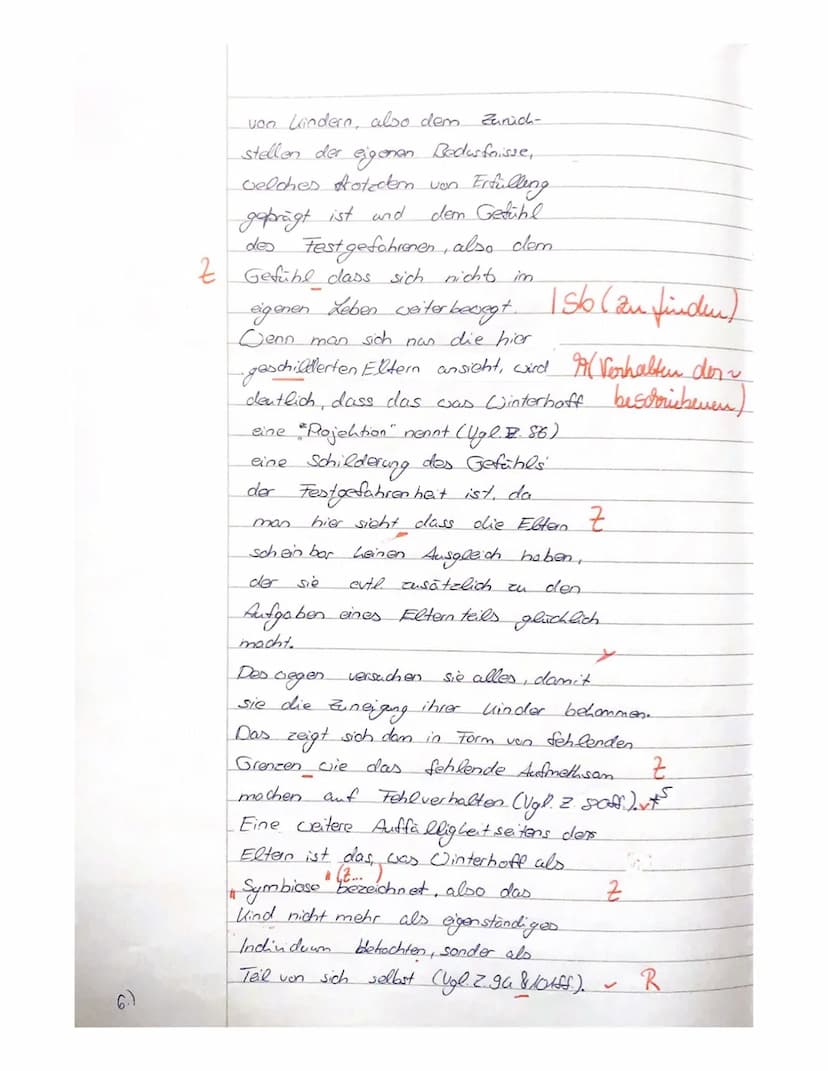 von Kindern, also dem Zurück-
stellen der eigenen Bedürfnisse,
welches trotzdem von Erfüllung
geprägt ist und dem Gefühl
des Festgefahrenen, also dem
Z Gefühl dass sich nichts im
eigenen Leben weiterbewegt. Sb (zu finden)
Wenn man sich nun die hier
geschilderten Eltern ansieht, wird (Verhalten der
deutlich, dass das was Winterhoff beschriebenen)
eine "Projektion" nennt (Vgl. Z. 86)
eine Schilderung des Gefühls
der Festgefahrenheit ist, da
man hier sieht dass die Eltern Z
scheinbar keinen Ausgleich haben,
der sie evtl. zusätzlich zu den
Aufgaben eines Elternteils glücklich
macht.
Deswegen versuchen sie alles, damit
sie die Zuneigung ihrer Kinder bekommen.
Das zeigt sich dann in Form von fehlenden
Grenzen wie das fehlende Aufmerksam Z
machen auf Fehlverhalten (Vgl. Z. 80ff.). *5
Eine weitere Auffälligkeit seitens der
Eltern ist das, was Winterhoff als
(Z...)
"Symbiose" bezeichnet, also das Z
Kind nicht mehr als eigenständiges
Individuum betrachten, sonder als
Teil von sich selbst (Vgl. Z. 94 & 101ff). R
6.)